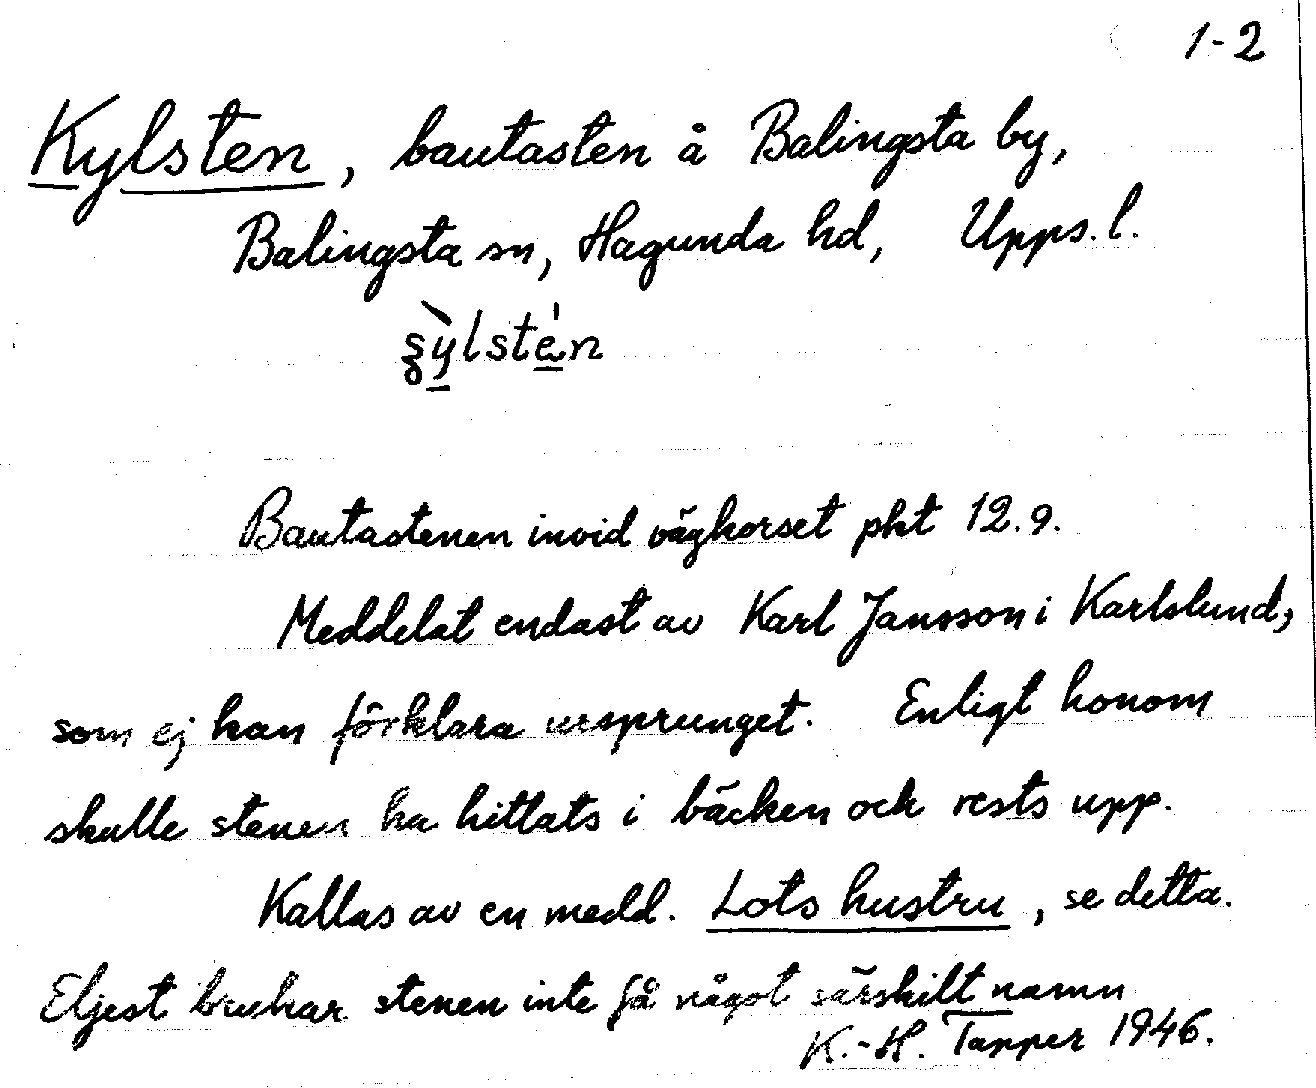 1-2
Kylsten, bautasten å Balingsta by,
Balingsta sn, Hagunda hd, Upps. l.
Bautastenen invid vägkorset pkt 12.9.
Meddelat endast av Karl Jansson i Karlslund,
som ej kan förklara ursprunget. Enligt honom
skulle stenen ha hittats i bäcken och rests upp.
Kallas av en medd. Lots hustru, se detta.
Eljest brukar stenen inte få något särskilt namn
K.-H. Tapper 1946.